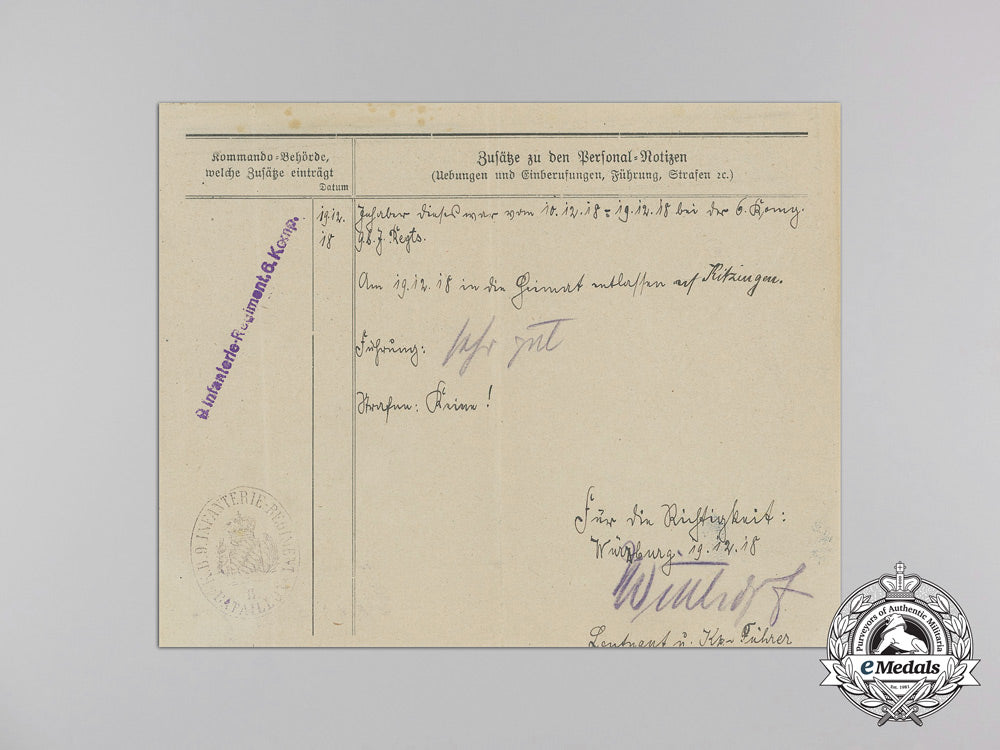 Kommando-Behörde,
welche Zusätze einträgt
Datum
Zusätze zu den Personal-Notizen
(Uebungen und Einberufungen, Führung, Strafen ꝛc.)
9 Infanterie-Regiment, 6. Komp.
19.12.
18
Inhaber dieses war vom 10.12.18 - 19.12.18 bei der 6. Komp.
9. b. J. Regts.
Am 19.12.18 in die Heimat entlassen auf Kitzingen.
Führung: sehr gut
Strafen: Keine!
Für die Richtigkeit:
Würzburg. 19.12.18
Leutnant u. Kp.-Führer
K.B. 9. INFANTERIE-REGIMENT
II
BATAILLON
Purveyors of Authentic Militaria
eMedals
Est. 1983